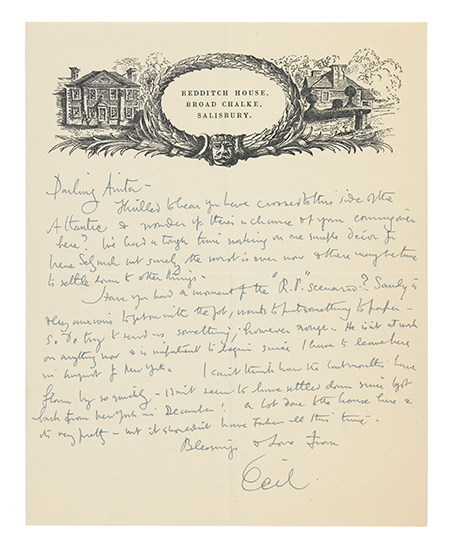 REDDITCH HOUSE,
BROAD CHALKE,
SALISBURY.
Darling Anita –
Thrilled to hear you have crossed to this side of the
Atlantic & wonder if there's a chance of your coming over
here? We had a tough time making on one simple décor for
Irene Selznick but surely the worst is over now & there may be time
to settle down to other things –
Have you had a moment for the "R.P." scenario? Sandy is
very anxious to get on with the job, wants to put something to paper –
So do try & send us something, however rough. He isn't at work
on anything now & is impatient to begin since I have to leave here
in August for New York. I can't think how the last months have
flown by so quickly – I don't seem to have settled down since I got
back from New York in December! A lot done to the house here &
its very pretty – but it shouldn't have taken all this time –
Blessings & Love from
Cecil